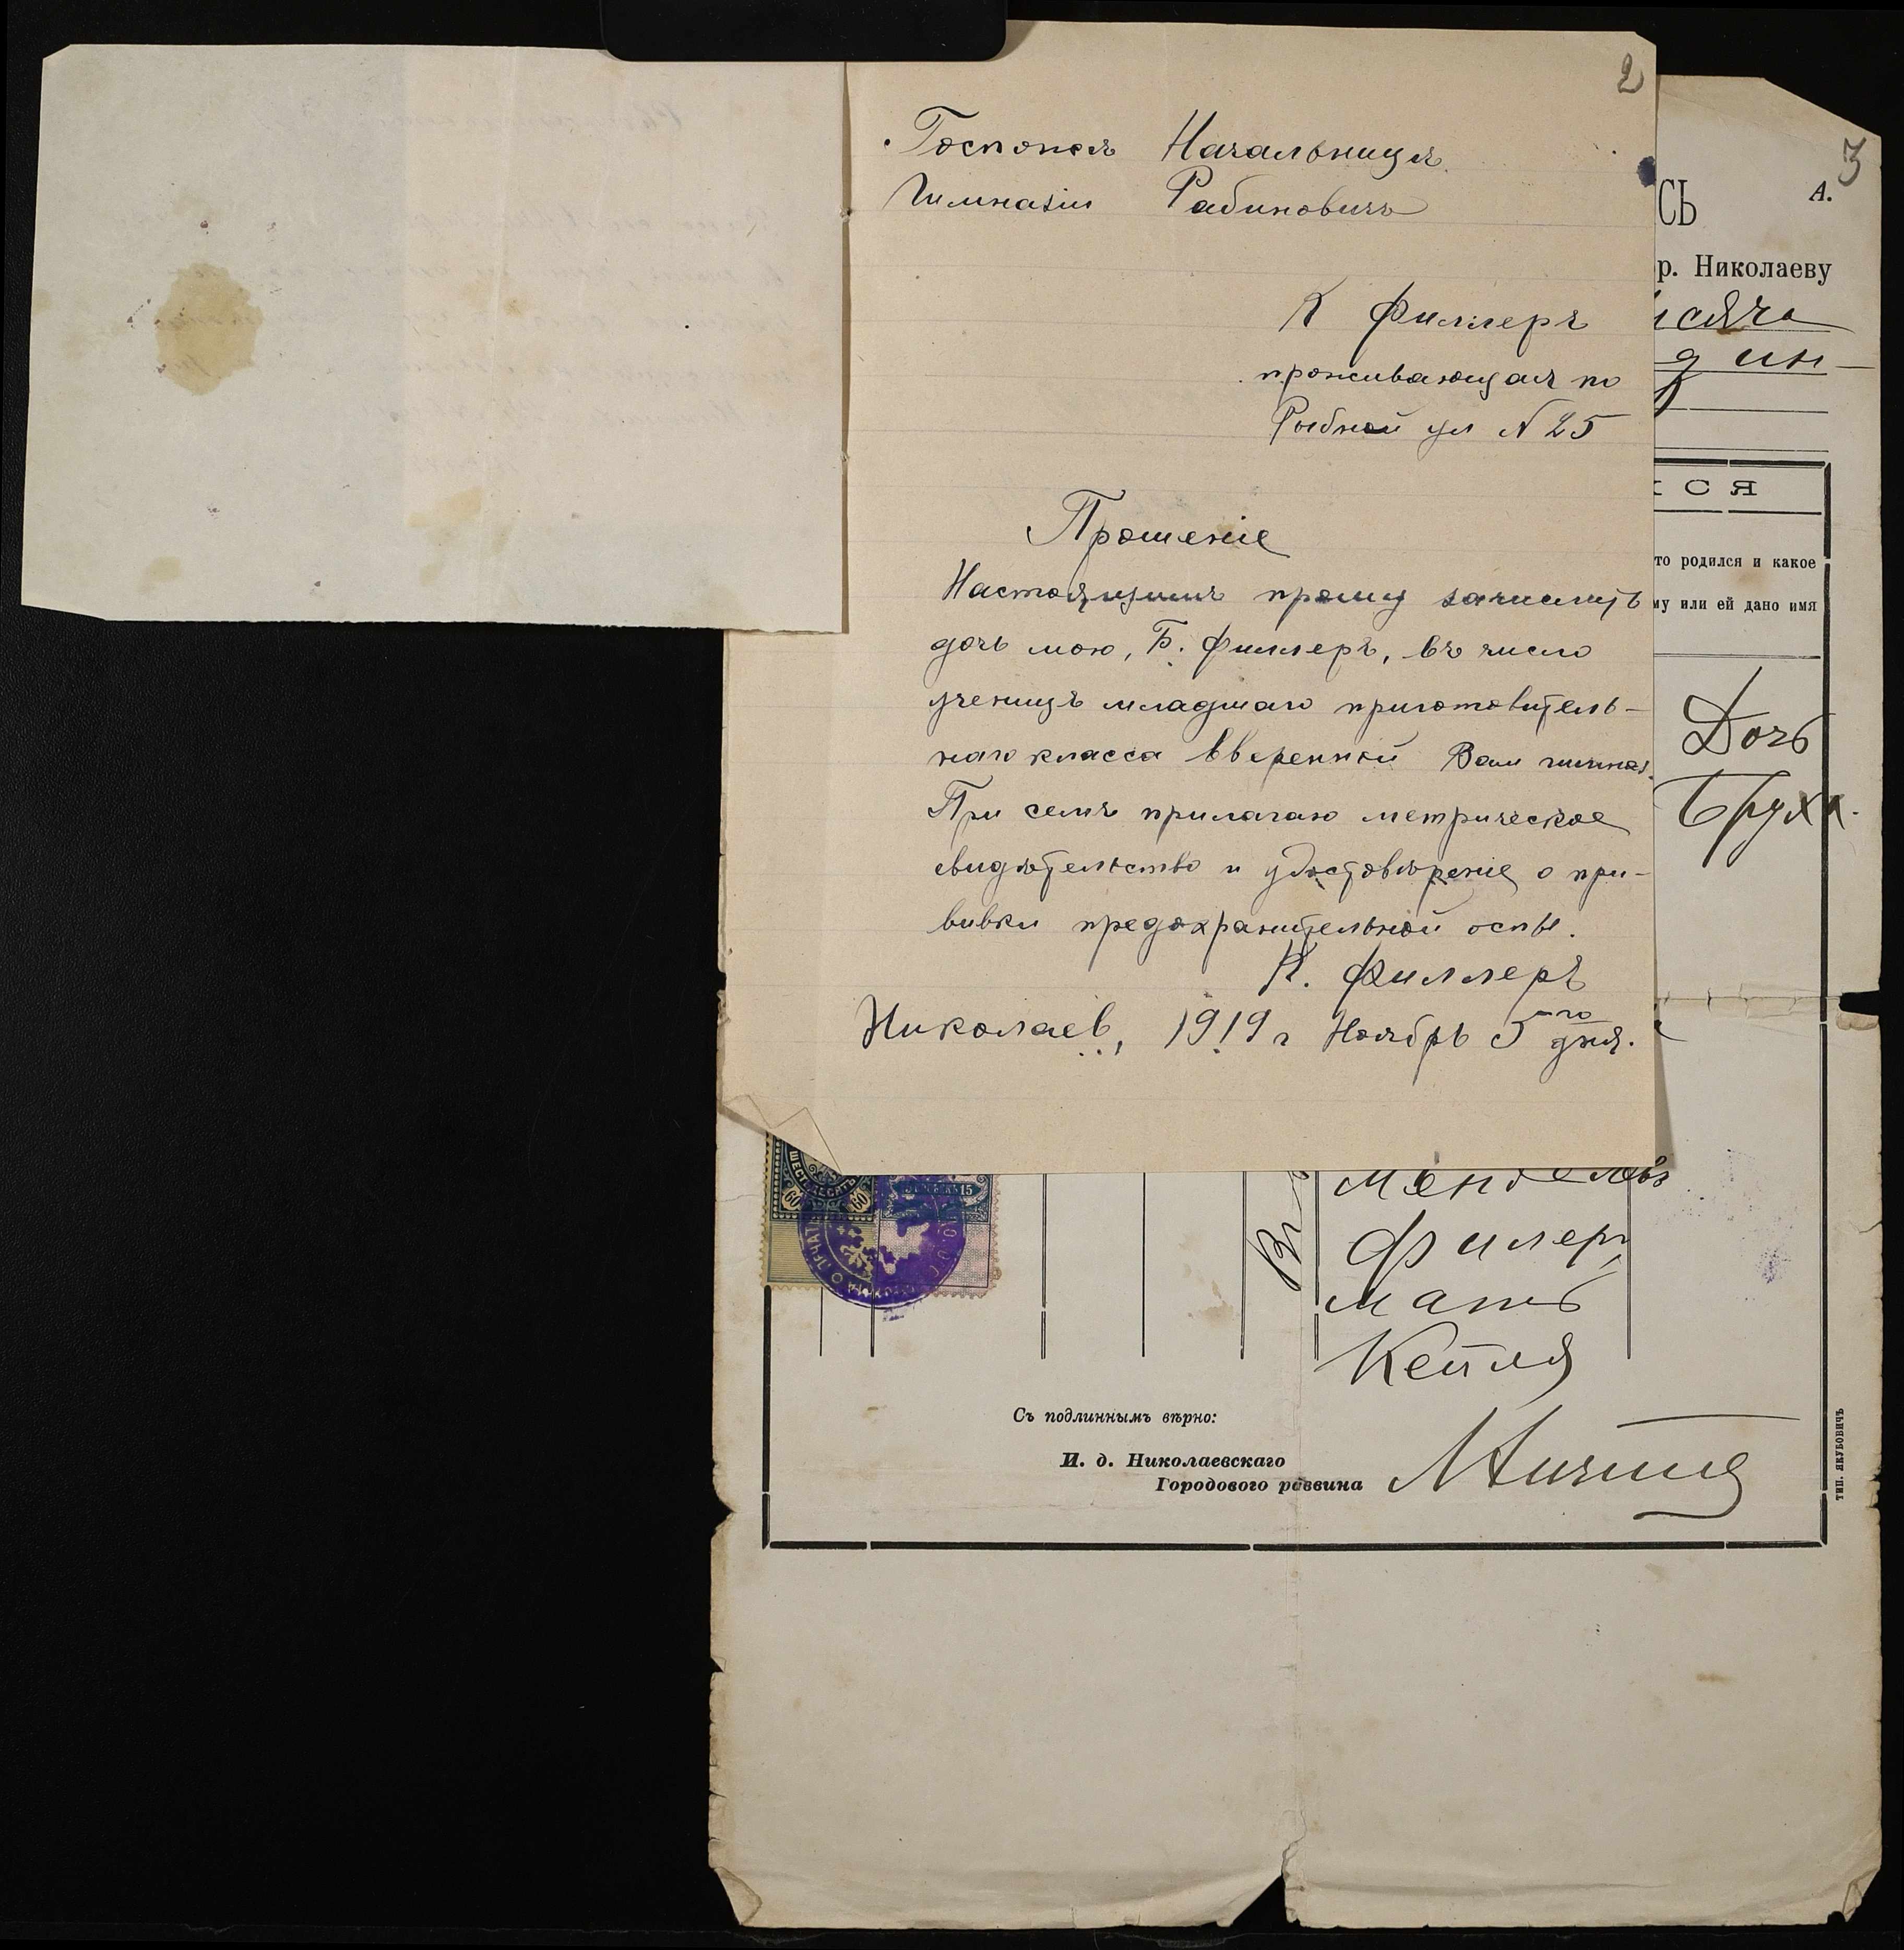 2
Госпожа Начальница
Гимназіи Рабиновичъ
К Филлеръ
проживающая по
Рыбной ул N 25
Прошеніе
Настоящимъ прошу зачислить
дочь мою, Б. Филлеръ, въ число
ученицъ младшаго приготовитель-
наго класса вверенной Вам гимназ.
При семъ прилагаю метрическое
свидѣтельство и удостовѣреніе о при-
вивки предохранительной оспы.
К. Филлеръ
Николаев, 1919 г Ноябрь 5го дня.
3
СЬ А.
р. Николаеву
ысяча
дин
СЯ
то родился и какое
му или ей дано имя
Дочь
Бруха.
Менделевъ
Филеръ
мать
Кейля
60 60
15
Съ подлиннымъ вѣрно:
И. д. Николаевскаго
Городового раввина
ТИП. ЯКУБОВИЧЪ